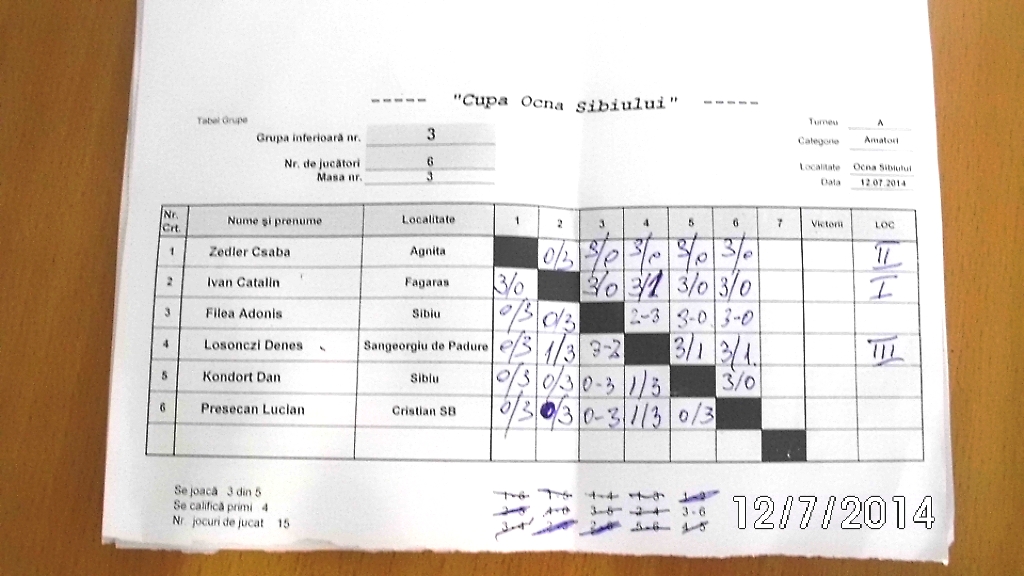 ----- "Cupa Ocna Sibiului" -----
Tabel Grupe
Turneu A
Grupa inferioară nr. 3
Categorie Amatori
Nr. de jucători 6
Localitate Ocna Sibiului
Masa nr. 3
Data 12.07.2014
Nr. Crt. Nume și prenume Localitate 1 2 3 4 5 6 7 Victorii LOC
1 Zedler Csaba Agnita 0/3 3/0 3/0 3/0 3/0 II
2 Ivan Catalin Fagaras 3/0 3/0 3/1 3/0 3/0 I
3 Filea Adonis Sibiu 0/3 0/3 2-3 3-0 3-0
4 Losonczi Denes Sangeorgiu de Padure 0/3 1/3 3-2 3/1 3/1. III
5 Kondort Dan Sibiu 0/3 0/3 0-3 1/3 3/0
6 Presecan Lucian Cristian SB 0/3 0/3 0-3 1/3 0/3
Se joacă 3 din 5
Se califică primi 4
Nr. jocuri de jucat 15
1-4
3-6
2-4
5-6
12/7/2014